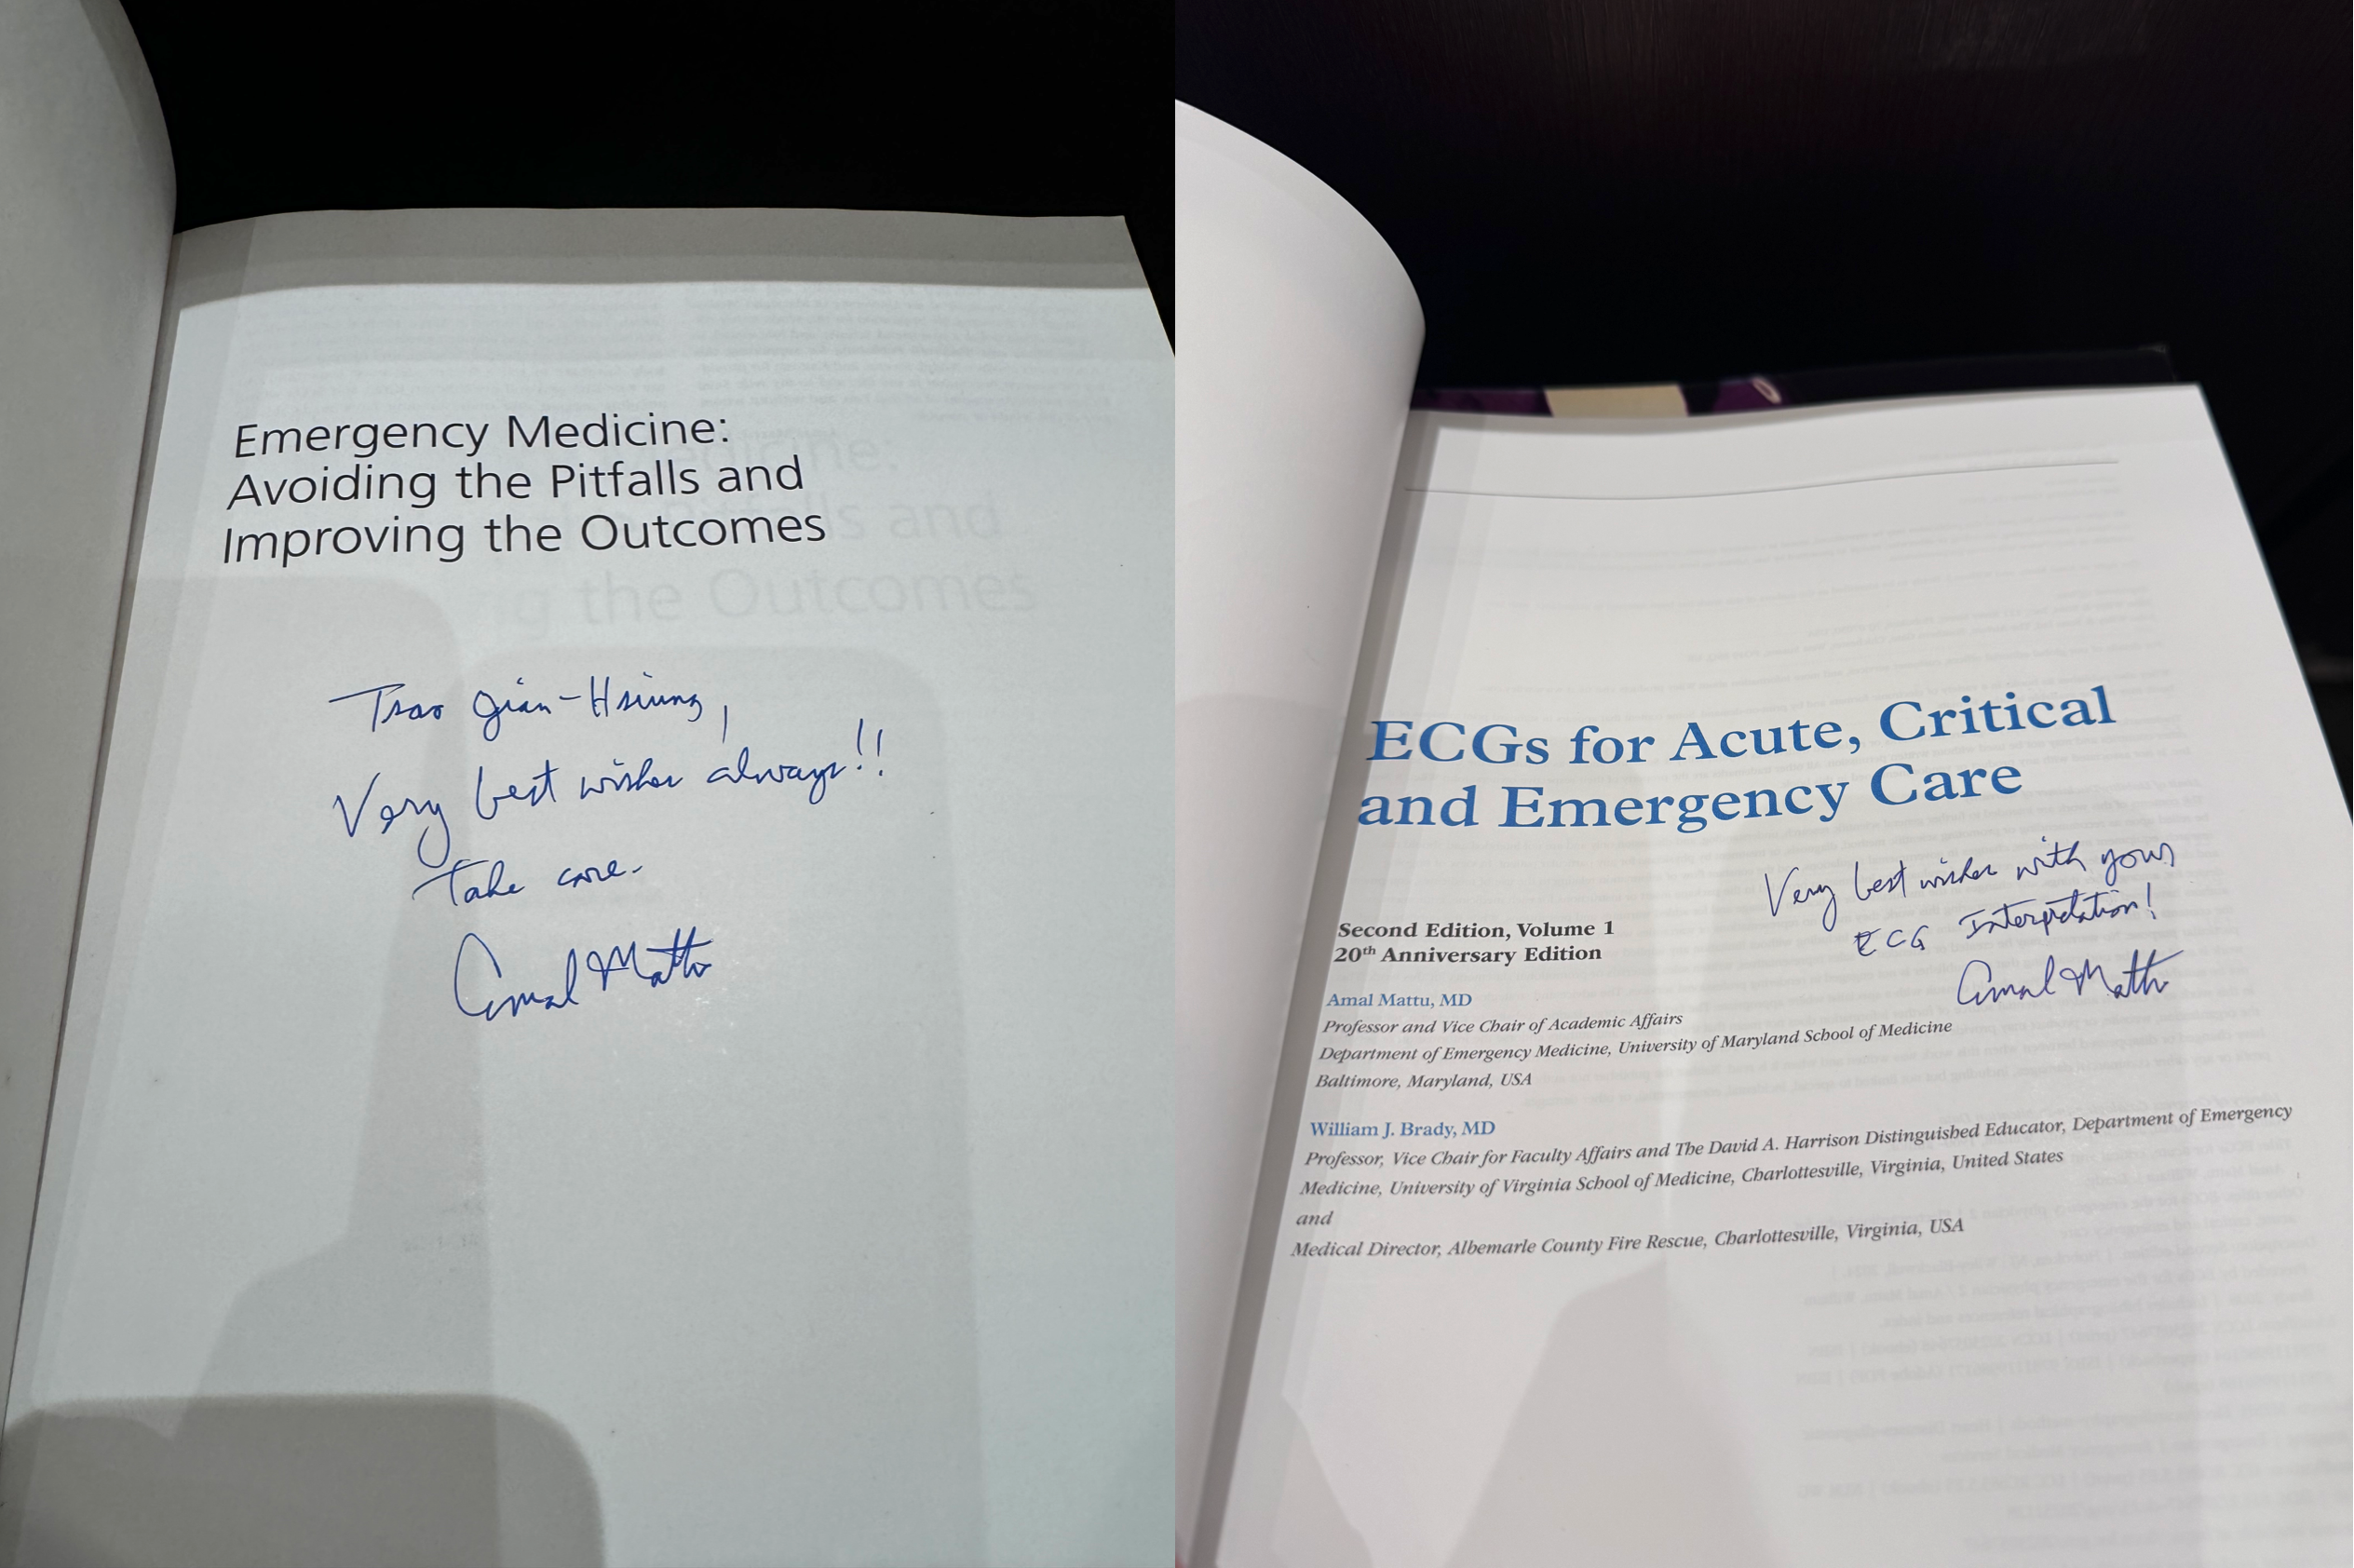 Emergency Medicine:
Avoiding the Pitfalls and
Improving the Outcomes
Tsao Jian-Hsiung,
Very best wishes always!!
Take care.
Amal Mattu
ECGs for Acute, Critical
and Emergency Care
Very best wishes with your
ECG Interpretation!
Amal Mattu
Second Edition, Volume 1
20th Anniversary Edition
Amal Mattu, MD
Professor and Vice Chair of Academic Affairs
Department of Emergency Medicine, University of Maryland School of Medicine
Baltimore, Maryland, USA
William J. Brady, MD
Professor, Vice Chair for Faculty Affairs and The David A. Harrison Distinguished Educator, Department of Emergency
Medicine, University of Virginia School of Medicine, Charlottesville, Virginia, United States
and
Medical Director, Albemarle County Fire Rescue, Charlottesville, Virginia, USA